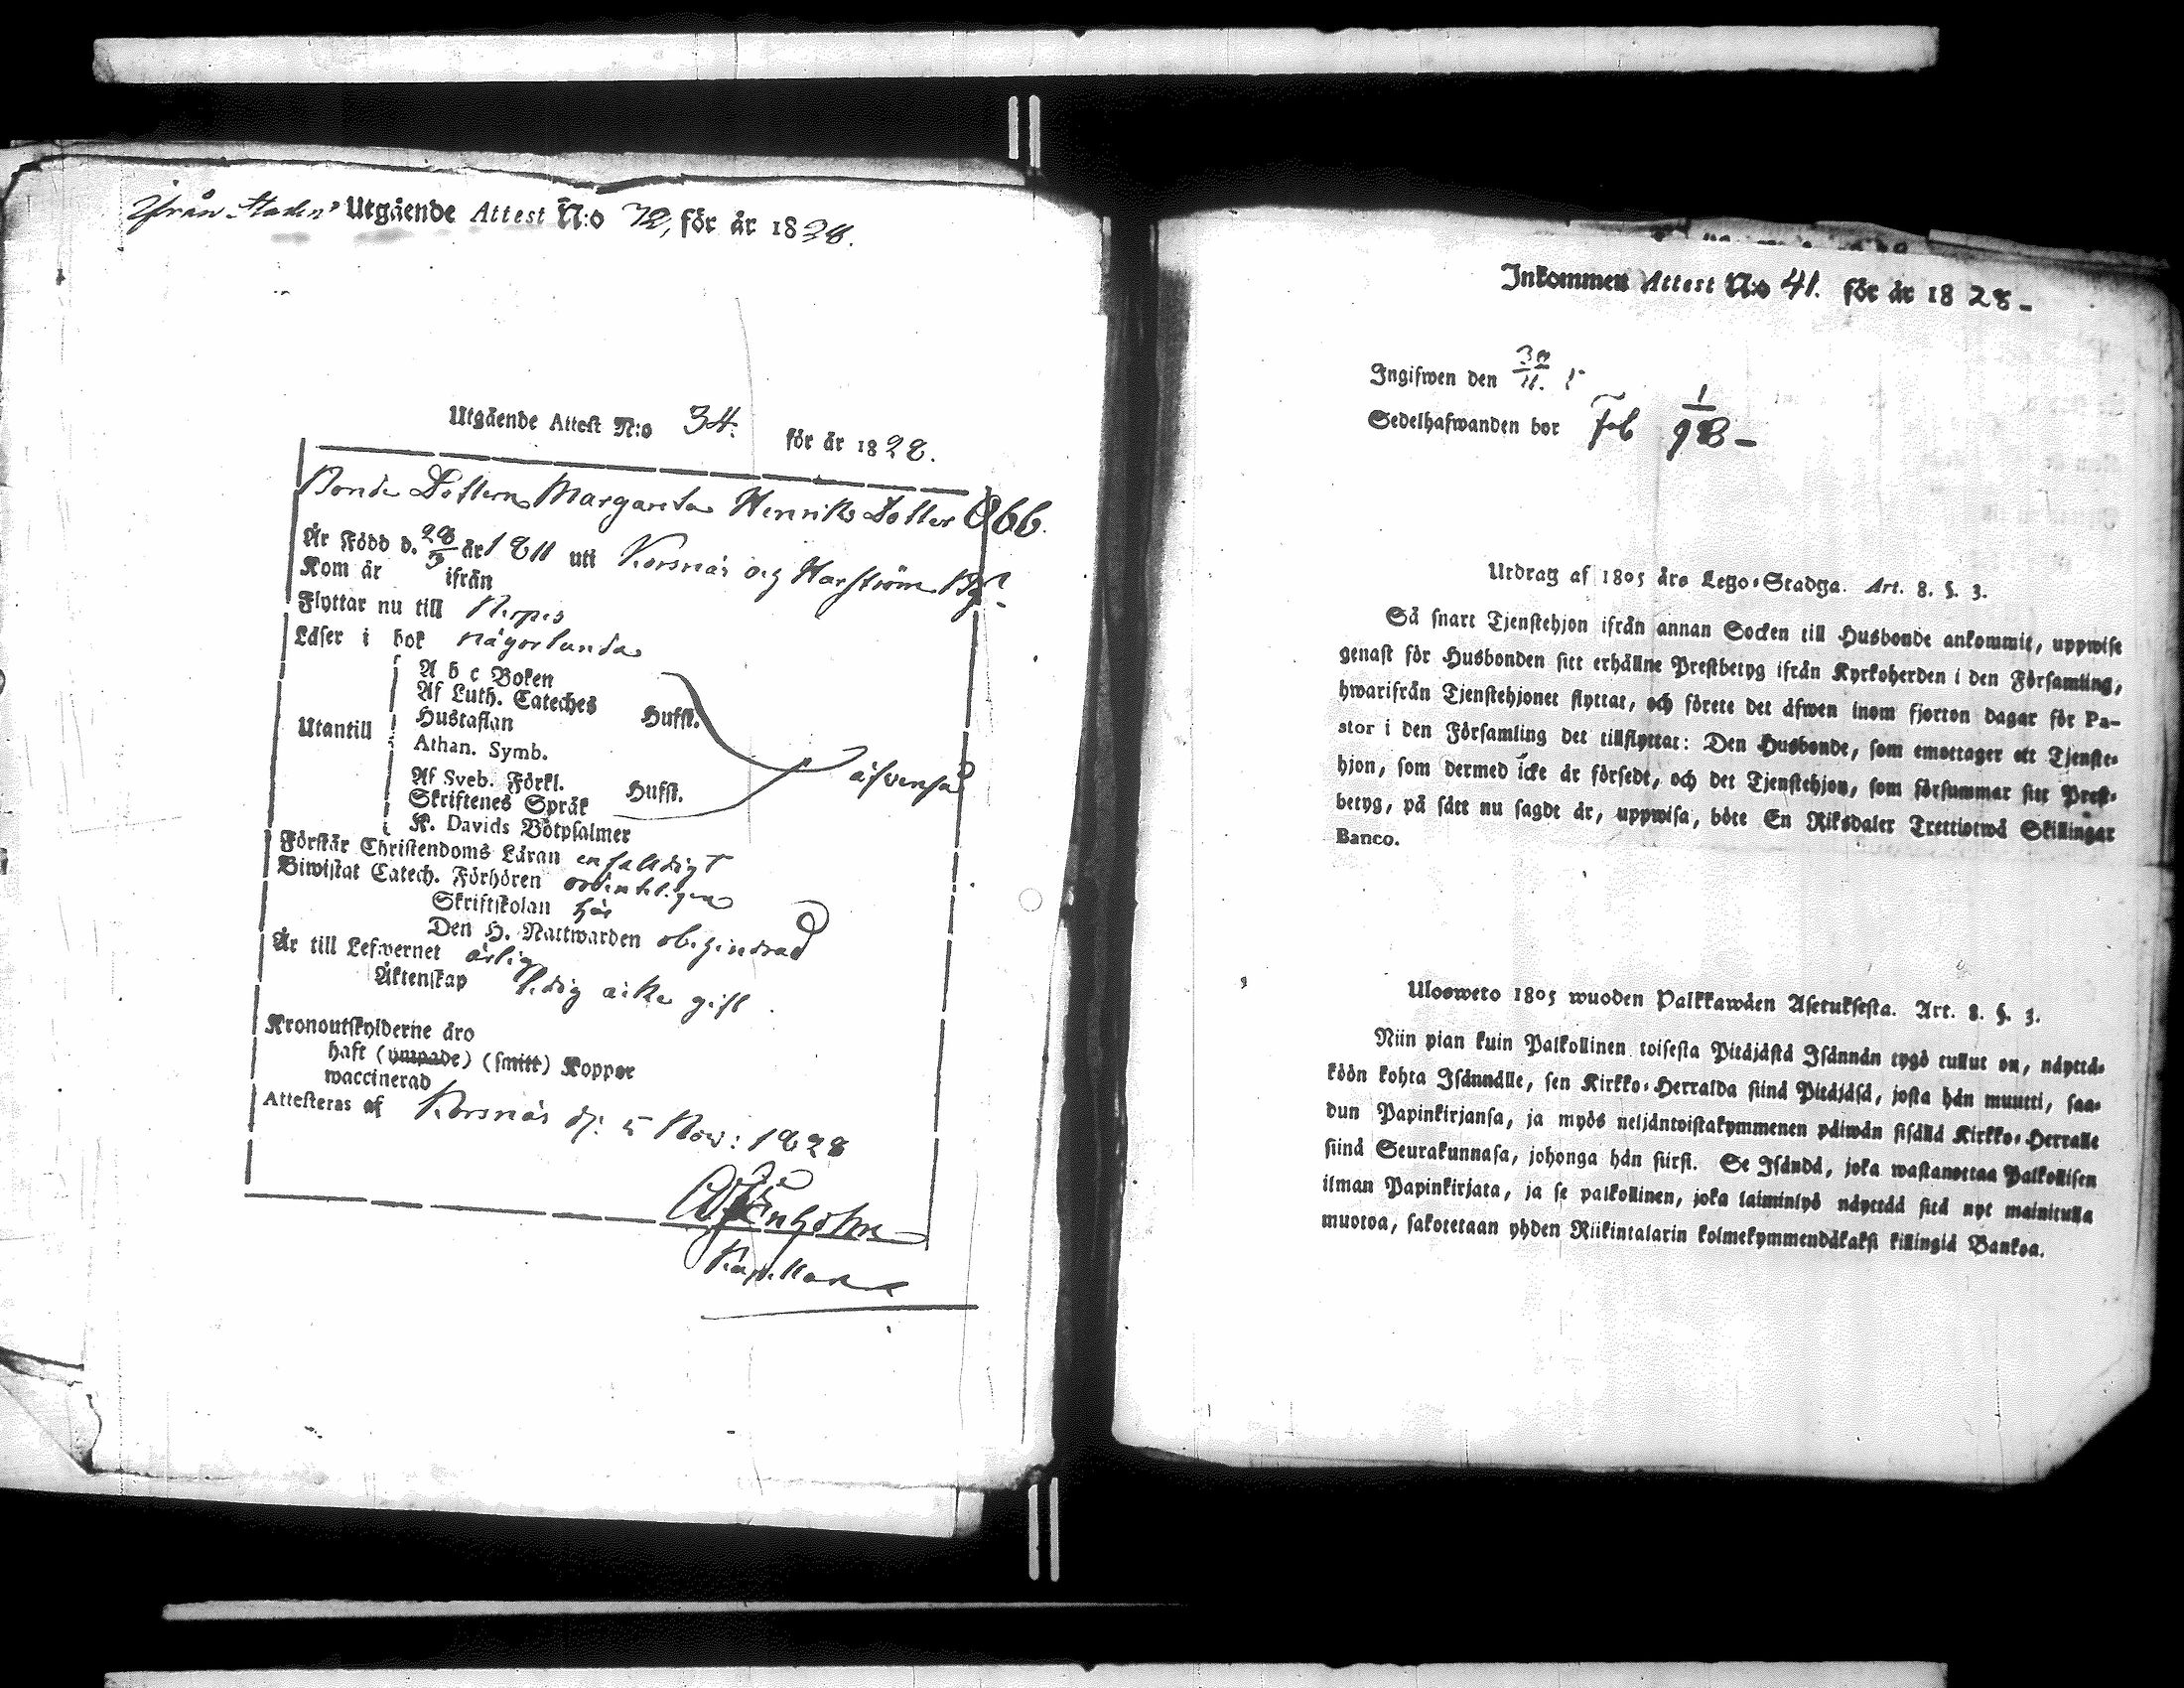 Utgående Attest N:o 72, för år 1828.
Utgående Attest N:o 34. för år 1828.
Bonde Dottern Margareta Henriks Dotter 866.
Är Född d. 28/3 år 1811 uti Korsnäs och Harström By
Kom år ifrån
Flyttar nu till Nerpes
Läser i bok någorlunda
Utantill
A b c Boken
Af Luth. Cateches Hufst.
Hustaflan
Athan. Symb.
äfvenså
Af Sveb. Förkl. Hufst.
Skriftenes Språk
K. Davids Botpsalmer
Förstår Christendoms Läran enfaldigt
Biwistat Catech. Förhören ordenteligen
Skriftskolan här
Den H. Nattwarden obehindrad
Är till Lefwernet ärlig
Äktenskap ledig icke gift
Kronoutskylderne äro
haft (ympade) (smitt) Koppor
waccinerad
Attesteras af Korsnäs d: 5 Nov: 1828
Kapellan
Inkommen Attest N:o 41. för år 1828-
Ingifwen den
Sedelhafwanden bor 1/98-
Utdrag af 1805 års Lego-Stadga. Art. 8. §. 3.
Så snart Tjenstehjon ifrån annan Socken till Husbonde ankommit, uppwise
genast för Husbonden sitt erhållne Prestbetyg ifrån Kyrkoherden i den Församling,
hwarifrån Tjenstehjonet flyttat, och förete det äfwen inom fjorton dagar för Pa-
stor i den Församling det tillflyttat: Den Husbonde, som emottager ett Tjenste-
hjon, som dermed icke är försedt, och det Tjenstehjon, som försummar sitt Prest-
betyg, på sätt nu sagdt är, uppwisa, böte En Riksdaler Trettiotwå Skillingar
Banco.
Ulosweto 1805 wuoden Palkkawäen Asetuksesta. Art. 8. §. 3.
Niin pian kuin Palkollinen toisesta Pitäjästä Isännän tygö tullut on, näyttä-
köön kohta Isännälle, sen Kirkko-Herralda siinä Pitäjäsä, josta hän muutti, saa-
dun Papinkirjansa, ja myös neljäntoistakymmenen päiwän sisällä Kirkko-Herralle
siinä Seurakunnasa, johonga hän siirsi. Se Isändä, joka wastanottaa Palkollisen
ilman Papinkirjata, ja se palkollinen, joka laiminlyö näyttää sitä nyt mainitulla
muotoa, sakotetaan yhden Riikintalarin kolmekymmendäkaksi killingiä Bankoa.